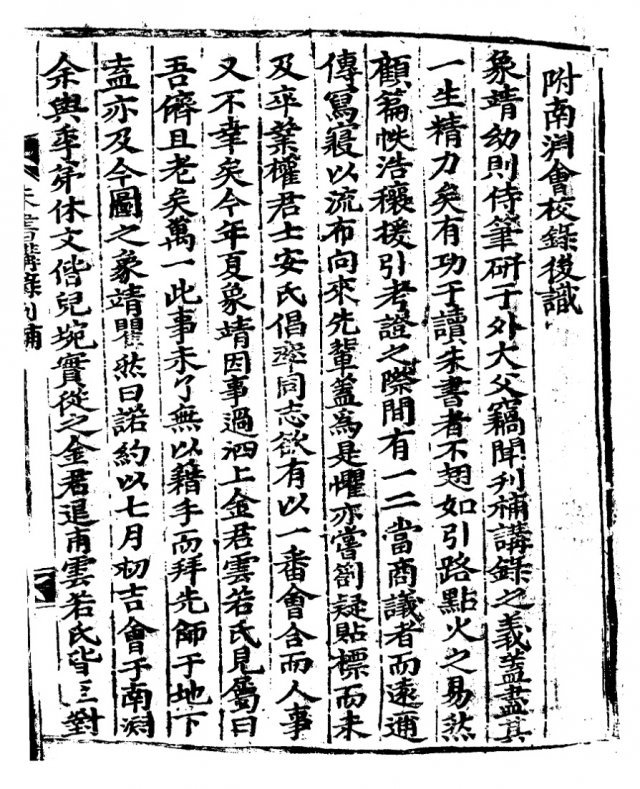 附南澗會校錄後識
象靖幼則侍筆硏于外大父竊聞刊補講錄之義蓋盡其
一生精力矣有功于讀朱書者不翅如引路點火之易然
顧篇帙浩穰援引考證之際間有一二當商議者而遠邇
傳寫寢以流布向來先輩盖爲是懼亦嘗劄疑貼標而未
及卒業權君士安氏倡率同志欲有以一番會合而人事
又不幸矣今年夏象靖因事過泗上金君雲若氏見屬曰
吾儕且老矣萬一此事未了無以籍手而拜先師于地下
盍亦及今圖之象靖瞿然曰諾約以七月初吉會于南澗
余與季弟休文偕兒埦實從之金君退甫雲若氏皆三對
朱書講錄刊補